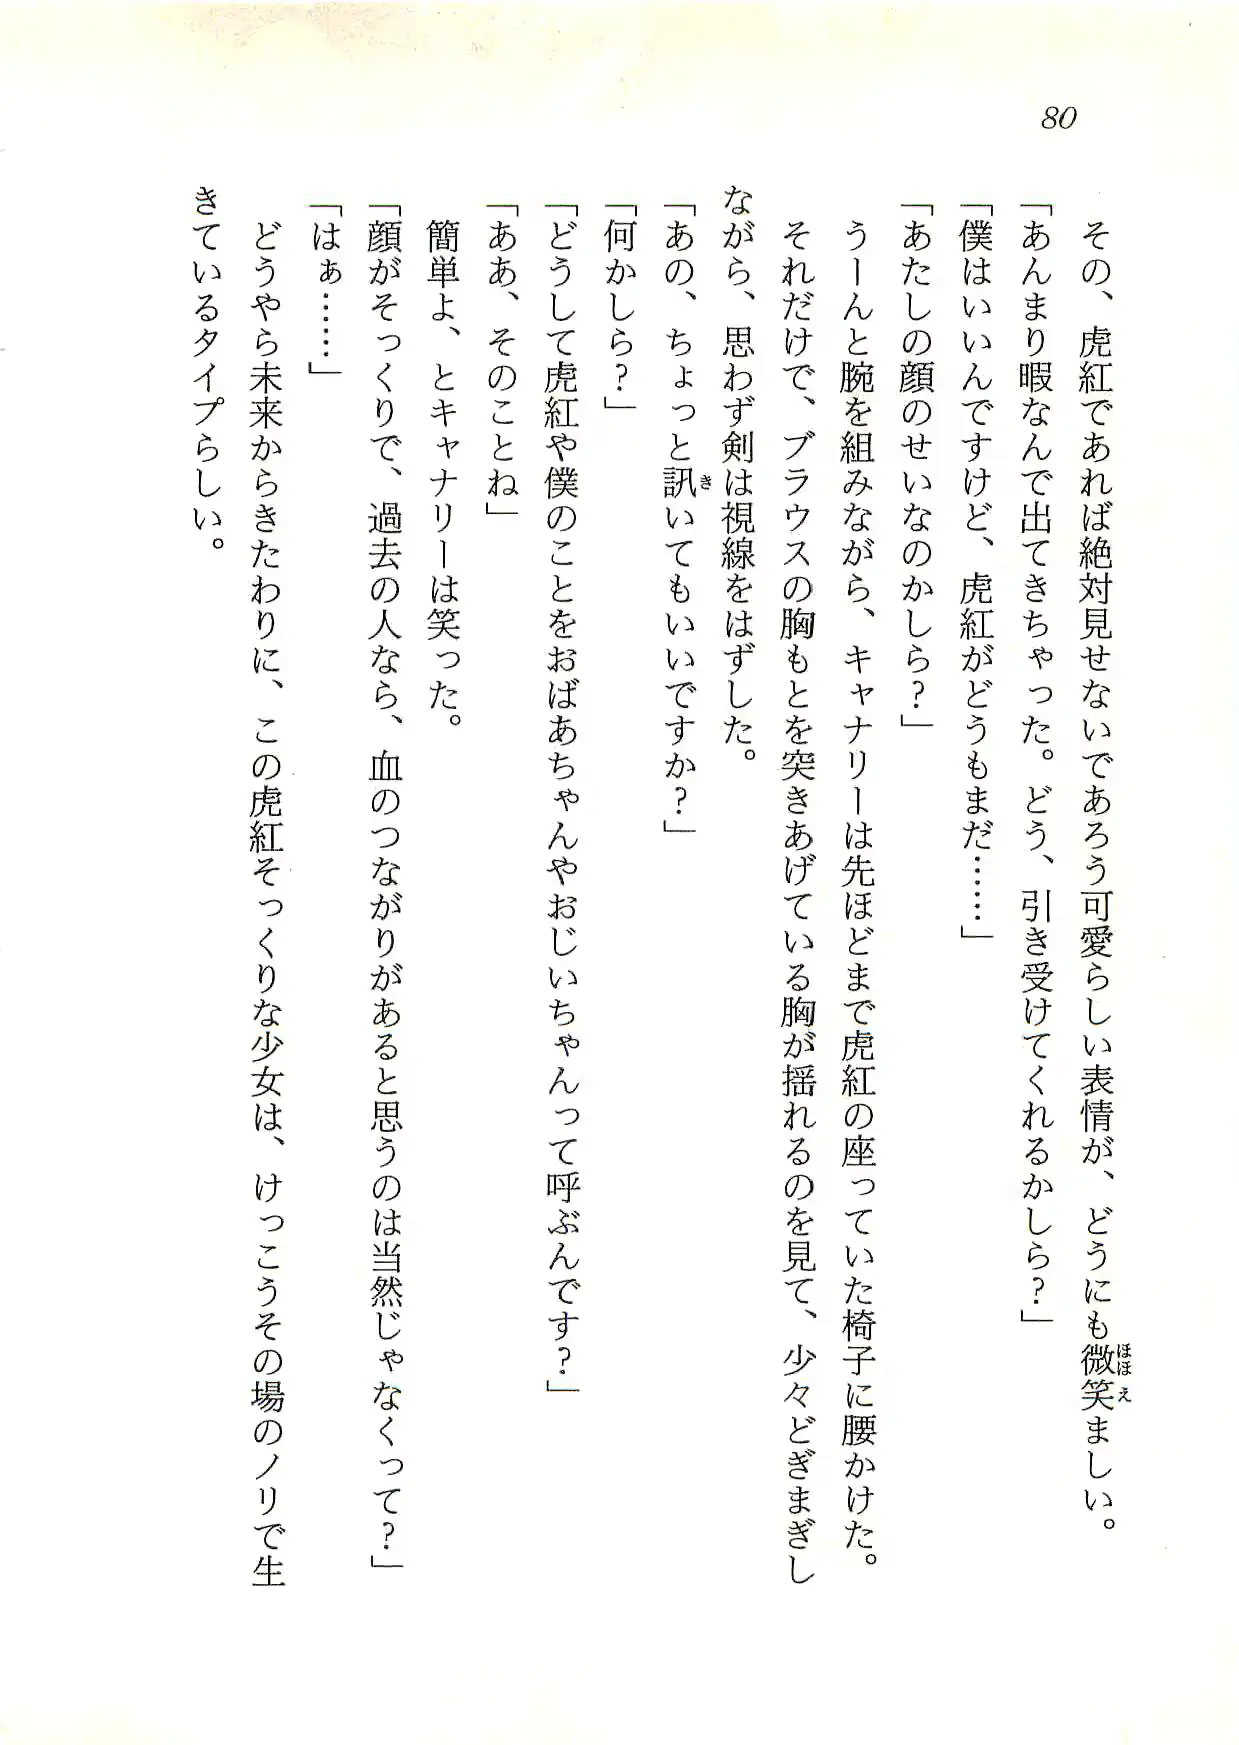 80
その、虎紅であれば絶対見せないであろう可愛らしい表情が、どうにも微笑ましい。
「あんまり暇なんで出てきちゃった。どう、引き受けてくれるかしら？」
「僕はいいんですけど、虎紅がどうもまだ……」
「あたしの顔のせいなのかしら？」
うーんと腕を組みながら、キャナリーは先ほどまで虎紅の座っていた椅子に腰かけた。
それだけで、ブラウスの胸もとを突きあげている胸が揺れるのを見て、少々どぎまぎし
ながら、思わず剣は視線をはずした。
「あの、ちょっと訊いてもいいですか？」
「何かしら？」
「どうして虎紅や僕のことをおばあちゃんやおじいちゃんって呼ぶんです？」
「ああ、そのことね」
簡単よ、とキャナリーは笑った。
「顔がそっくりで、過去の人なら、血のつながりがあると思うのは当然じゃなくって？」
「はぁ……」
どうやら未来からきたわりに、この虎紅そっくりな少女は、けっこうその場のノリで生
きているタイプらしい。